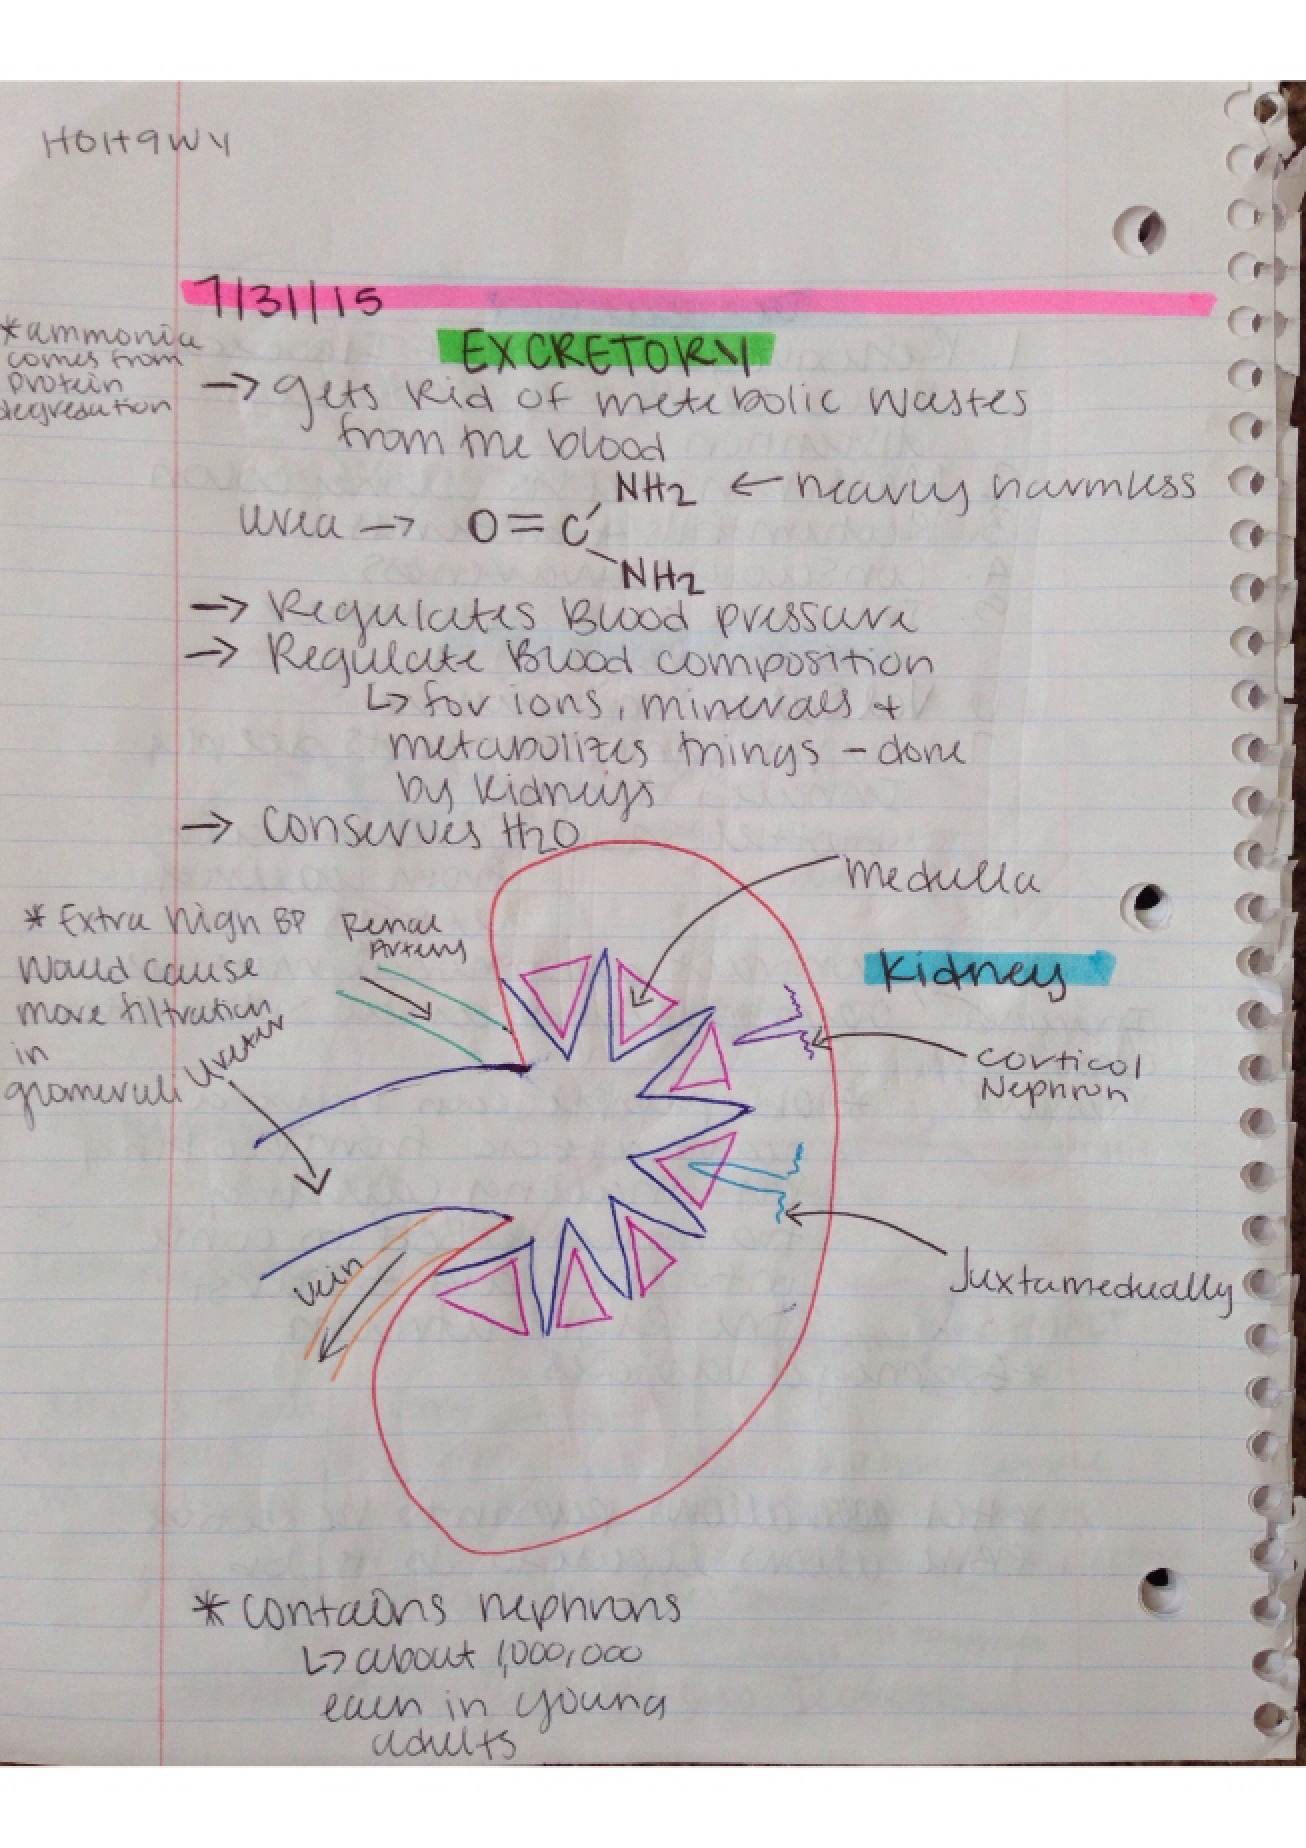 HOH9WY
7/31/15
*ammonia
comes from
protein
degredation
EXCRETORY
→ gets rid of metebolic wastes
from the blood
NH2 ← nearly harmless
urea → O=C
NH2
→ Regulates Blood pressure
→ Regulate Blood composition
↳ for ions, minerals +
metabolizes things - done
by kidneys
→ Conserves H2O
medulla
* Extra high BP
would cause
more filtration
in
glomeruli
Renal
Artery
Kidney
Ureter
cortical
Nephron
vein
Juxtamedually
* contains nephrons
↳ about 1,000,000
each in young
adults